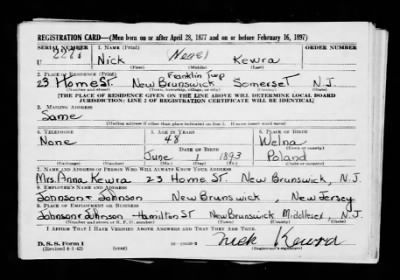 REGISTRATION CARD—(Men born on or after April 28, 1877 and on or before February 16, 1897)
SERIAL NUMBER 1. NAME (Print) ORDER NUMBER
U Nick (None) Kewra
(First) (Middle) (Last)
2. PLACE OF RESIDENCE (Print) Franklin Twp
23 Home St. New Brunswick Somerset N.J.
(Number and street) (Town, township, village, or city) (County) (State)
[THE PLACE OF RESIDENCE GIVEN ON THE LINE ABOVE WILL DETERMINE LOCAL BOARD
JURISDICTION; LINE 2 OF REGISTRATION CERTIFICATE WILL BE IDENTICAL]
3. MAILING ADDRESS
Same
(Mailing address if other than place indicated on line 2. If same insert word same)
4. TELEPHONE 5. AGE IN YEARS 6. PLACE OF BIRTH
None 48 Welna
DATE OF BIRTH
June 1 1893 Poland
7. NAME AND ADDRESS OF PERSON WHO WILL ALWAYS KNOW YOUR ADDRESS
Mrs. Anna Kewra 23 Home St. New Brunswick, N.J.
8. EMPLOYER'S NAME AND ADDRESS
Johnson & Johnson New Brunswick, New Jersey
9. PLACE OF EMPLOYMENT OR BUSINESS
Johnson & Johnson Hamilton St New Brunswick Middlesex N.J.
(Number and street or R. F. D. number) (Town) (County) (State)
I AFFIRM THAT I HAVE VERIFIED ABOVE ANSWERS AND THAT THEY ARE TRUE.
D. S. S. Form 1
(Revised 4-1-42) Nick Kewra